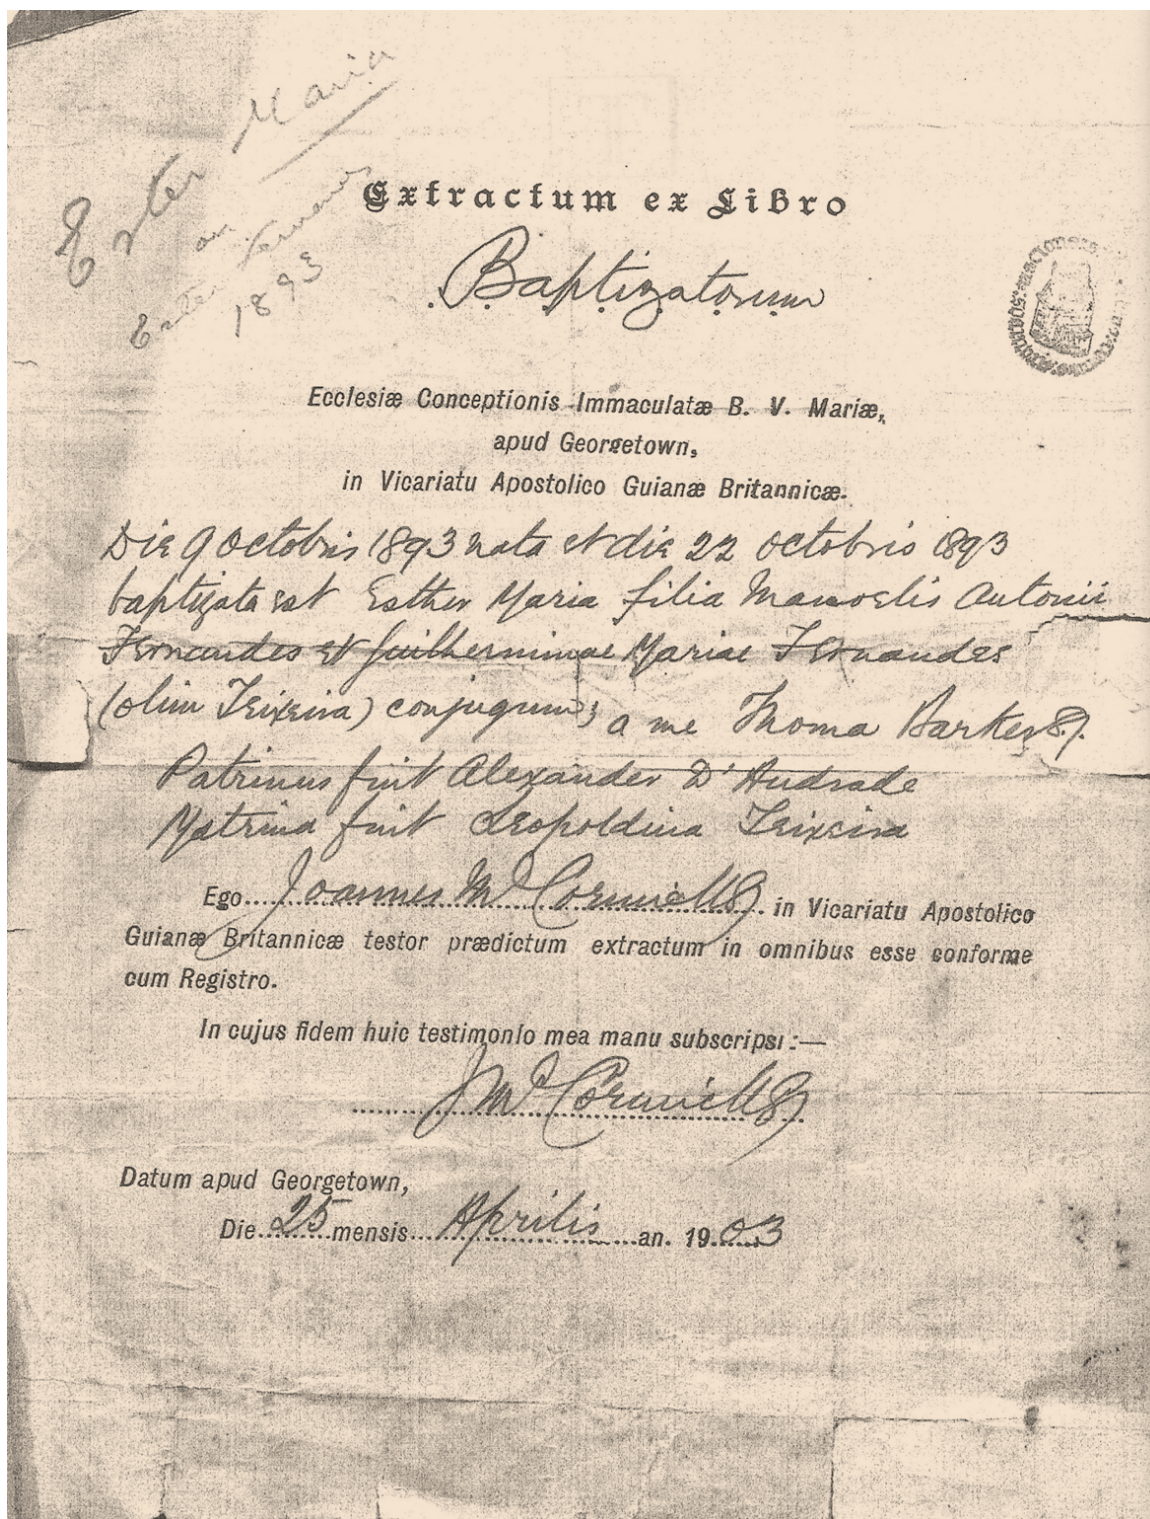 Ester Maria
Ester
1893
Extractum ex Libro
Baptizatorum
Ecclesiæ Conceptionis Immaculatæ B. V. Mariæ,
apud Georgetown,
in Vicariatu Apostolico Guianæ Britannicæ.
Die 9 Octobris 1893 nata et die 22 Octobris 1893
baptizata est Esther Maria filia Manoelis Antonii
Fernandes et Guilherminae Mariae Fernandes
(olim Teixeira) conjugum; a me Thoma Barker SJ.
Patrinus fuit Alexander D'Andrade
Matrina fuit Leopoldina Teixeira
Ego Joannes McCormick SJ in Vicariatu Apostolico
Guianæ Britannicæ testor prædictum extractum in omnibus esse conforme
cum Registro.
In cujus fidem huic testimonio mea manu subscripsi :—
J McCormick SJ
Datum apud Georgetown,
Die 25 mensis Aprilis an. 1903